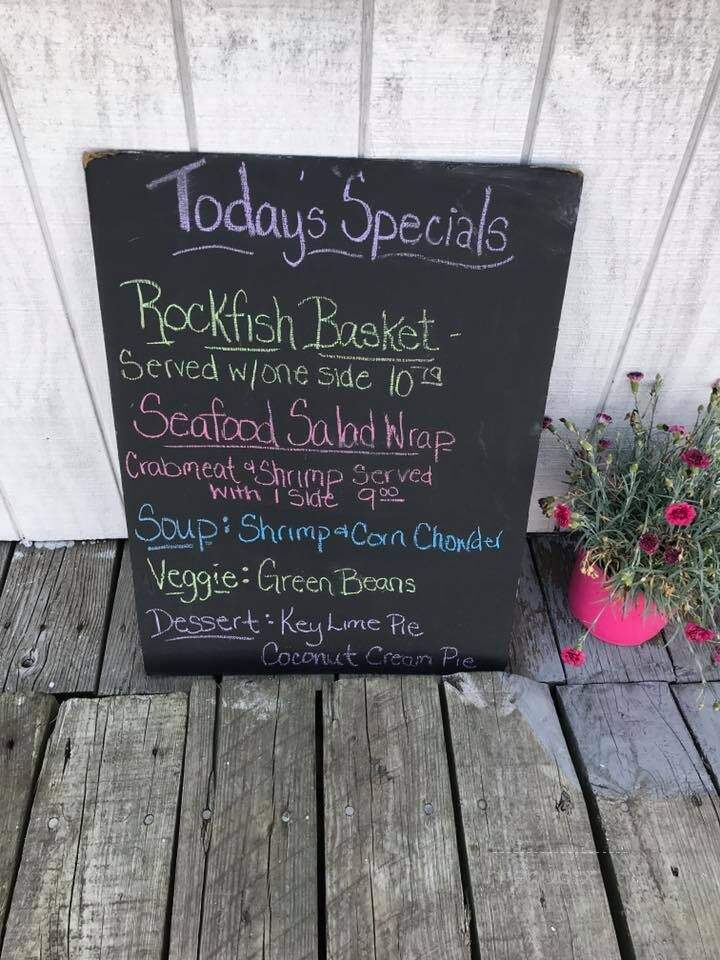 Today's Specials
Rockfish Basket -
Served w/one side 10
Seafood Salad Wrap
Crabmeat & Shrimp Served
with 1 side 9.00
Soup: Shrimp & Corn Chowder
Veggie: Green Beans
Dessert: Key Lime Pie
Coconut Cream Pie